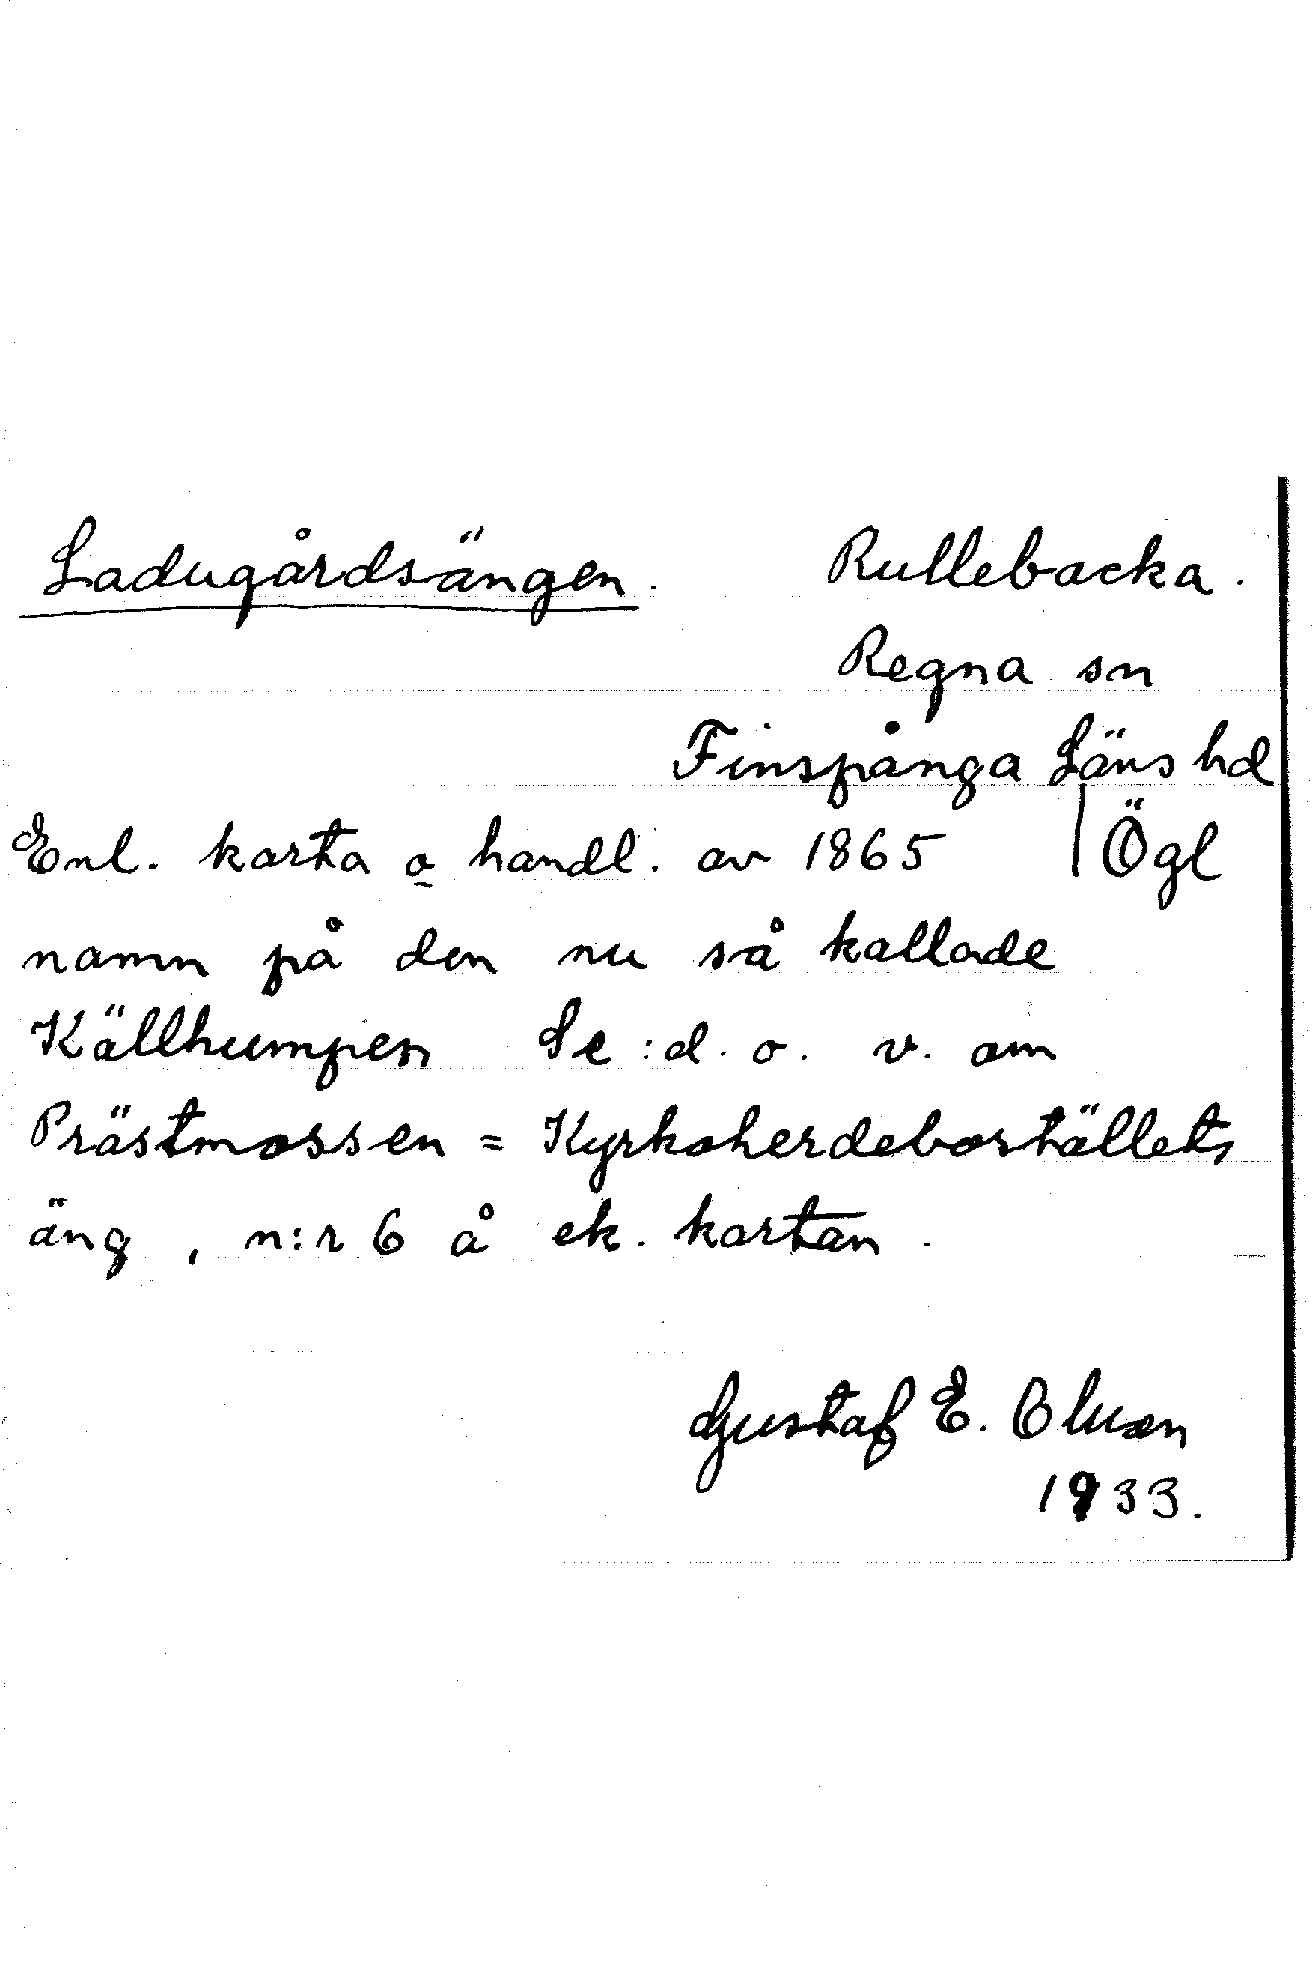 Ladugårdsängen. Rullebacka.
Regna sn
Finspånga Läns hd
Enl. karta o handl. av 1865 | Ögl
namn på den nu så kallade
Källhumpen Se :d. o. v. om
Prästmossen = Kyrkoherdebostället,
äng, n:r 6 å ek. kartan.
Gustaf E. Olson
1933.